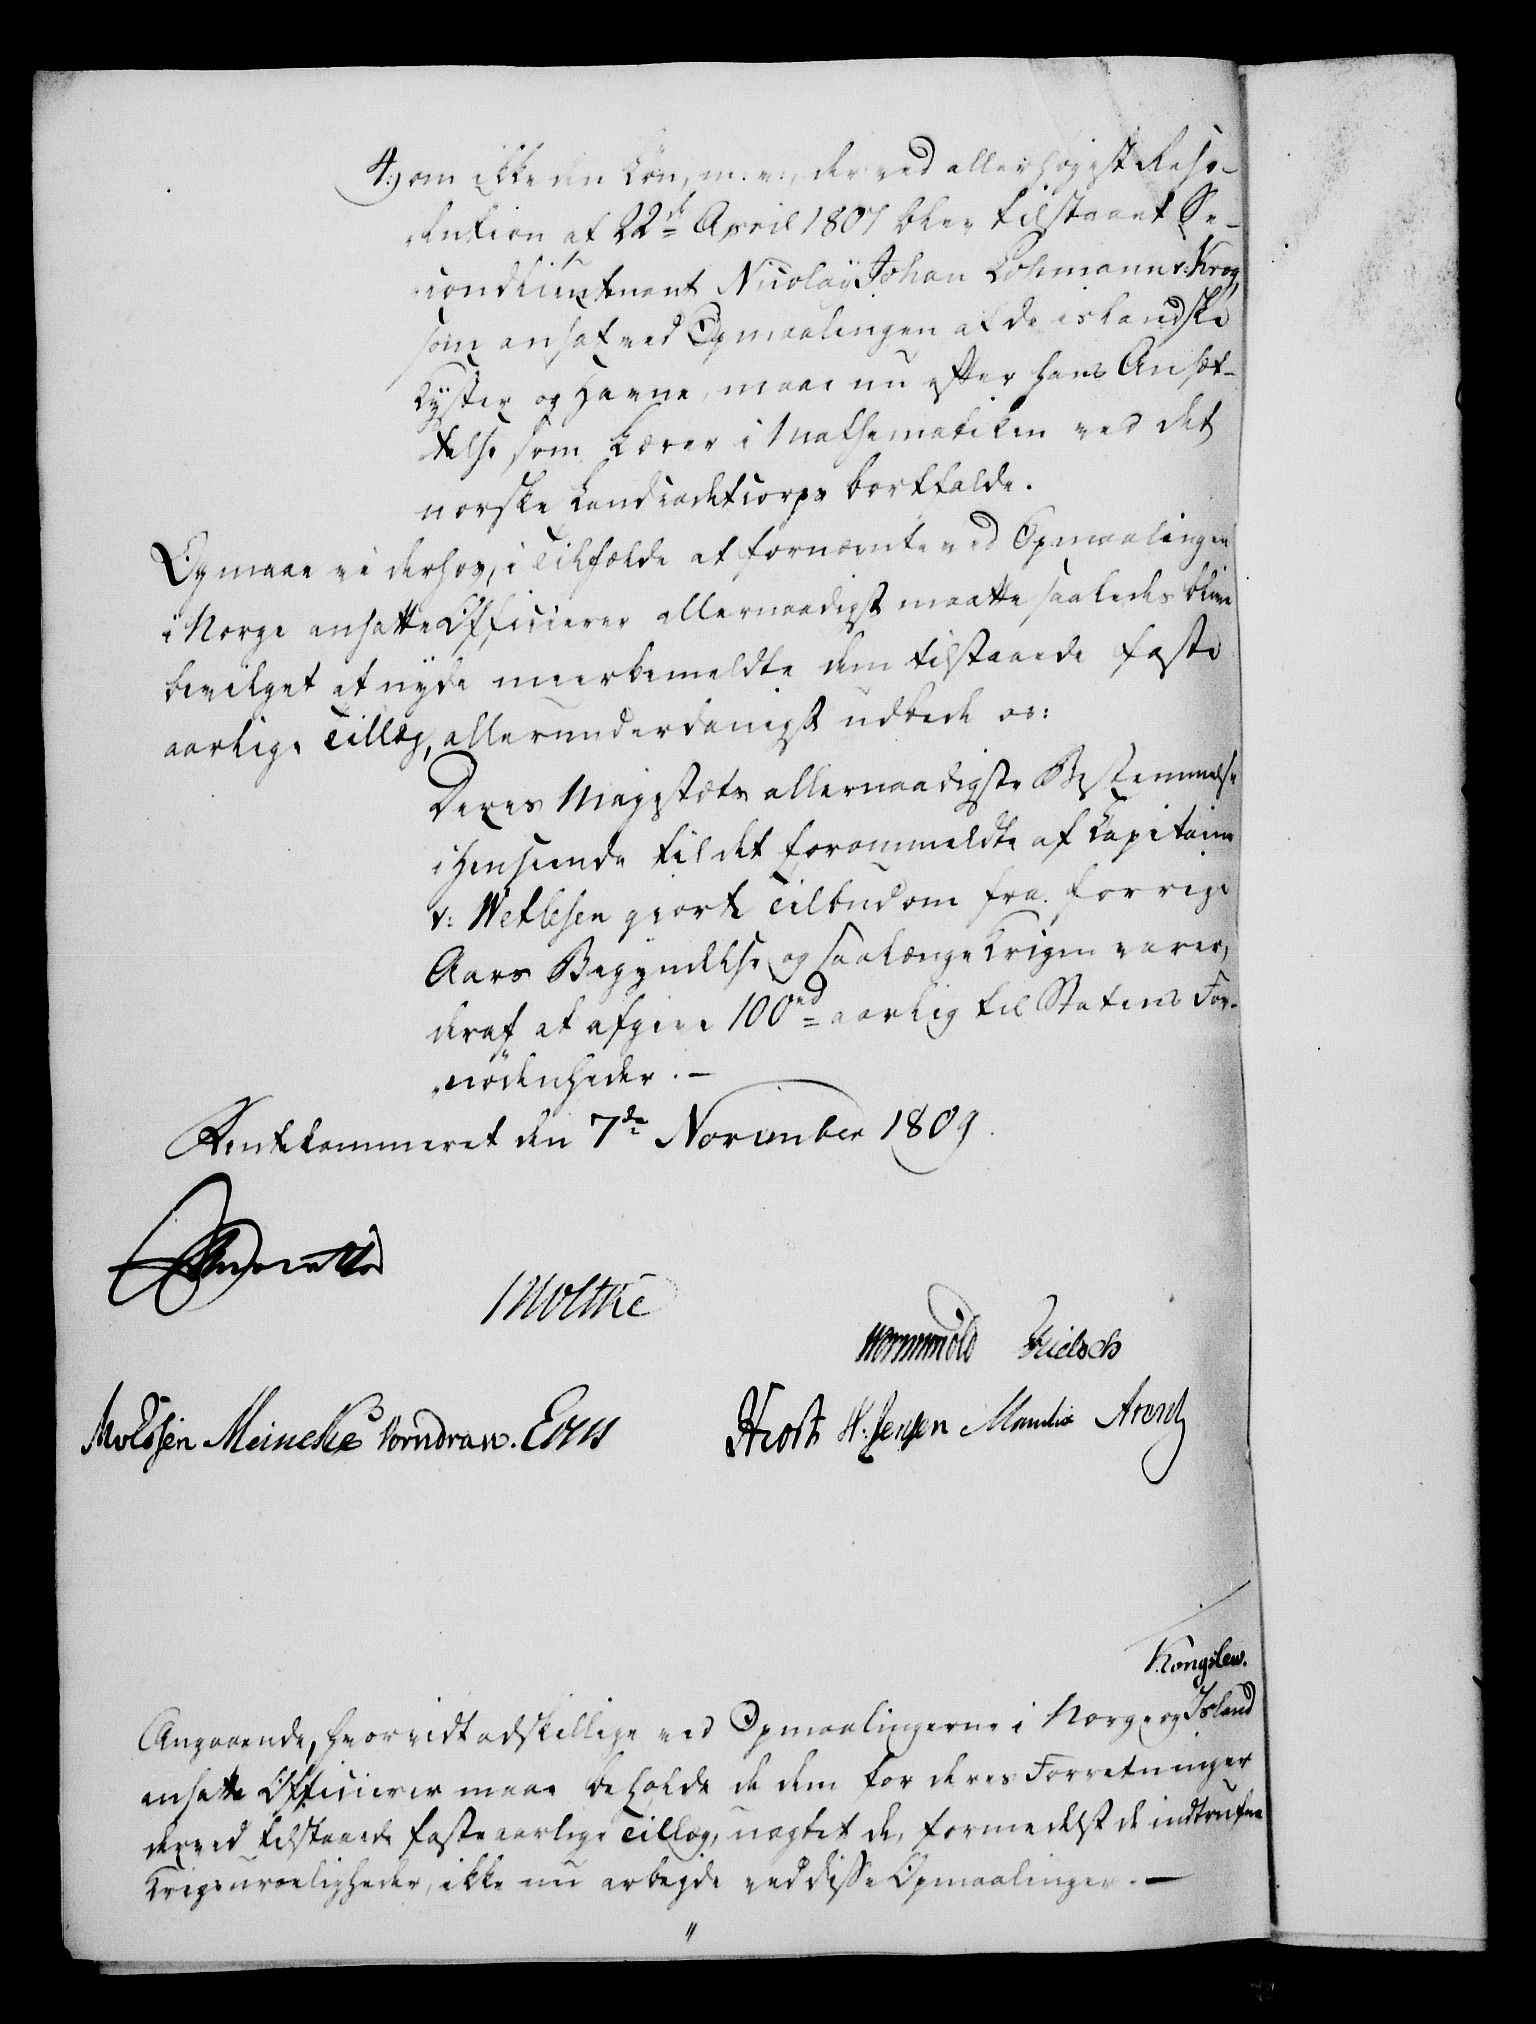 4.) om ikke den Løn, m. v., der ved allerhøyeste Reso-
lution af 22de April 1807 blev tilstaaet Se-
condlieutenant Nicolaÿ Johan Lohmann v: Krog,
som ansat ved Opmaalingen af de islandske
Kyster og Havne, maae nu efter hans Ansæt-
telse som Lærer i Mathematiken ved det
norske Landcadetcorps bortfalde.
Og maae vi derhos, i Tilfælde at fornævnte ved Opmaalingen
i Norge ansatte Officierer allernaadigst maatte saaledes blive
bevilget at nyde meerbemeldte dem tilstaaede faste
aarlige Tillæg, allerunderdanigst udbede os:
Deres Majestæts allernaadigste Bestemmelse
i Henseende til det forommeldte af Capitaine
v: Wetlesen giorte Tilbud om fra forrige
Aars Begyndelse og saalænge Krigen varer,
deraf at afgive 100 rd aarlig til Statens For-
nødenheder. -
Rentekammeret den 7de November 1809.
Moltke
Wormskiold
Hvoss H. Jensen Manthei Arentz
Moessen Meincke Vorndran.
Kongslew.
Angaaende, hvorvidt adskillige ved Opmaalingerne i Norge og Island
ansatte Officierer maae beholde de dem for deres Forretninger
derved tilstaaede faste aarlige Tillæg, uagtet de, formedelst de indtrufne
Krigsuroeligheder, ikke nu arbejde ved disse Opmaalinger. -